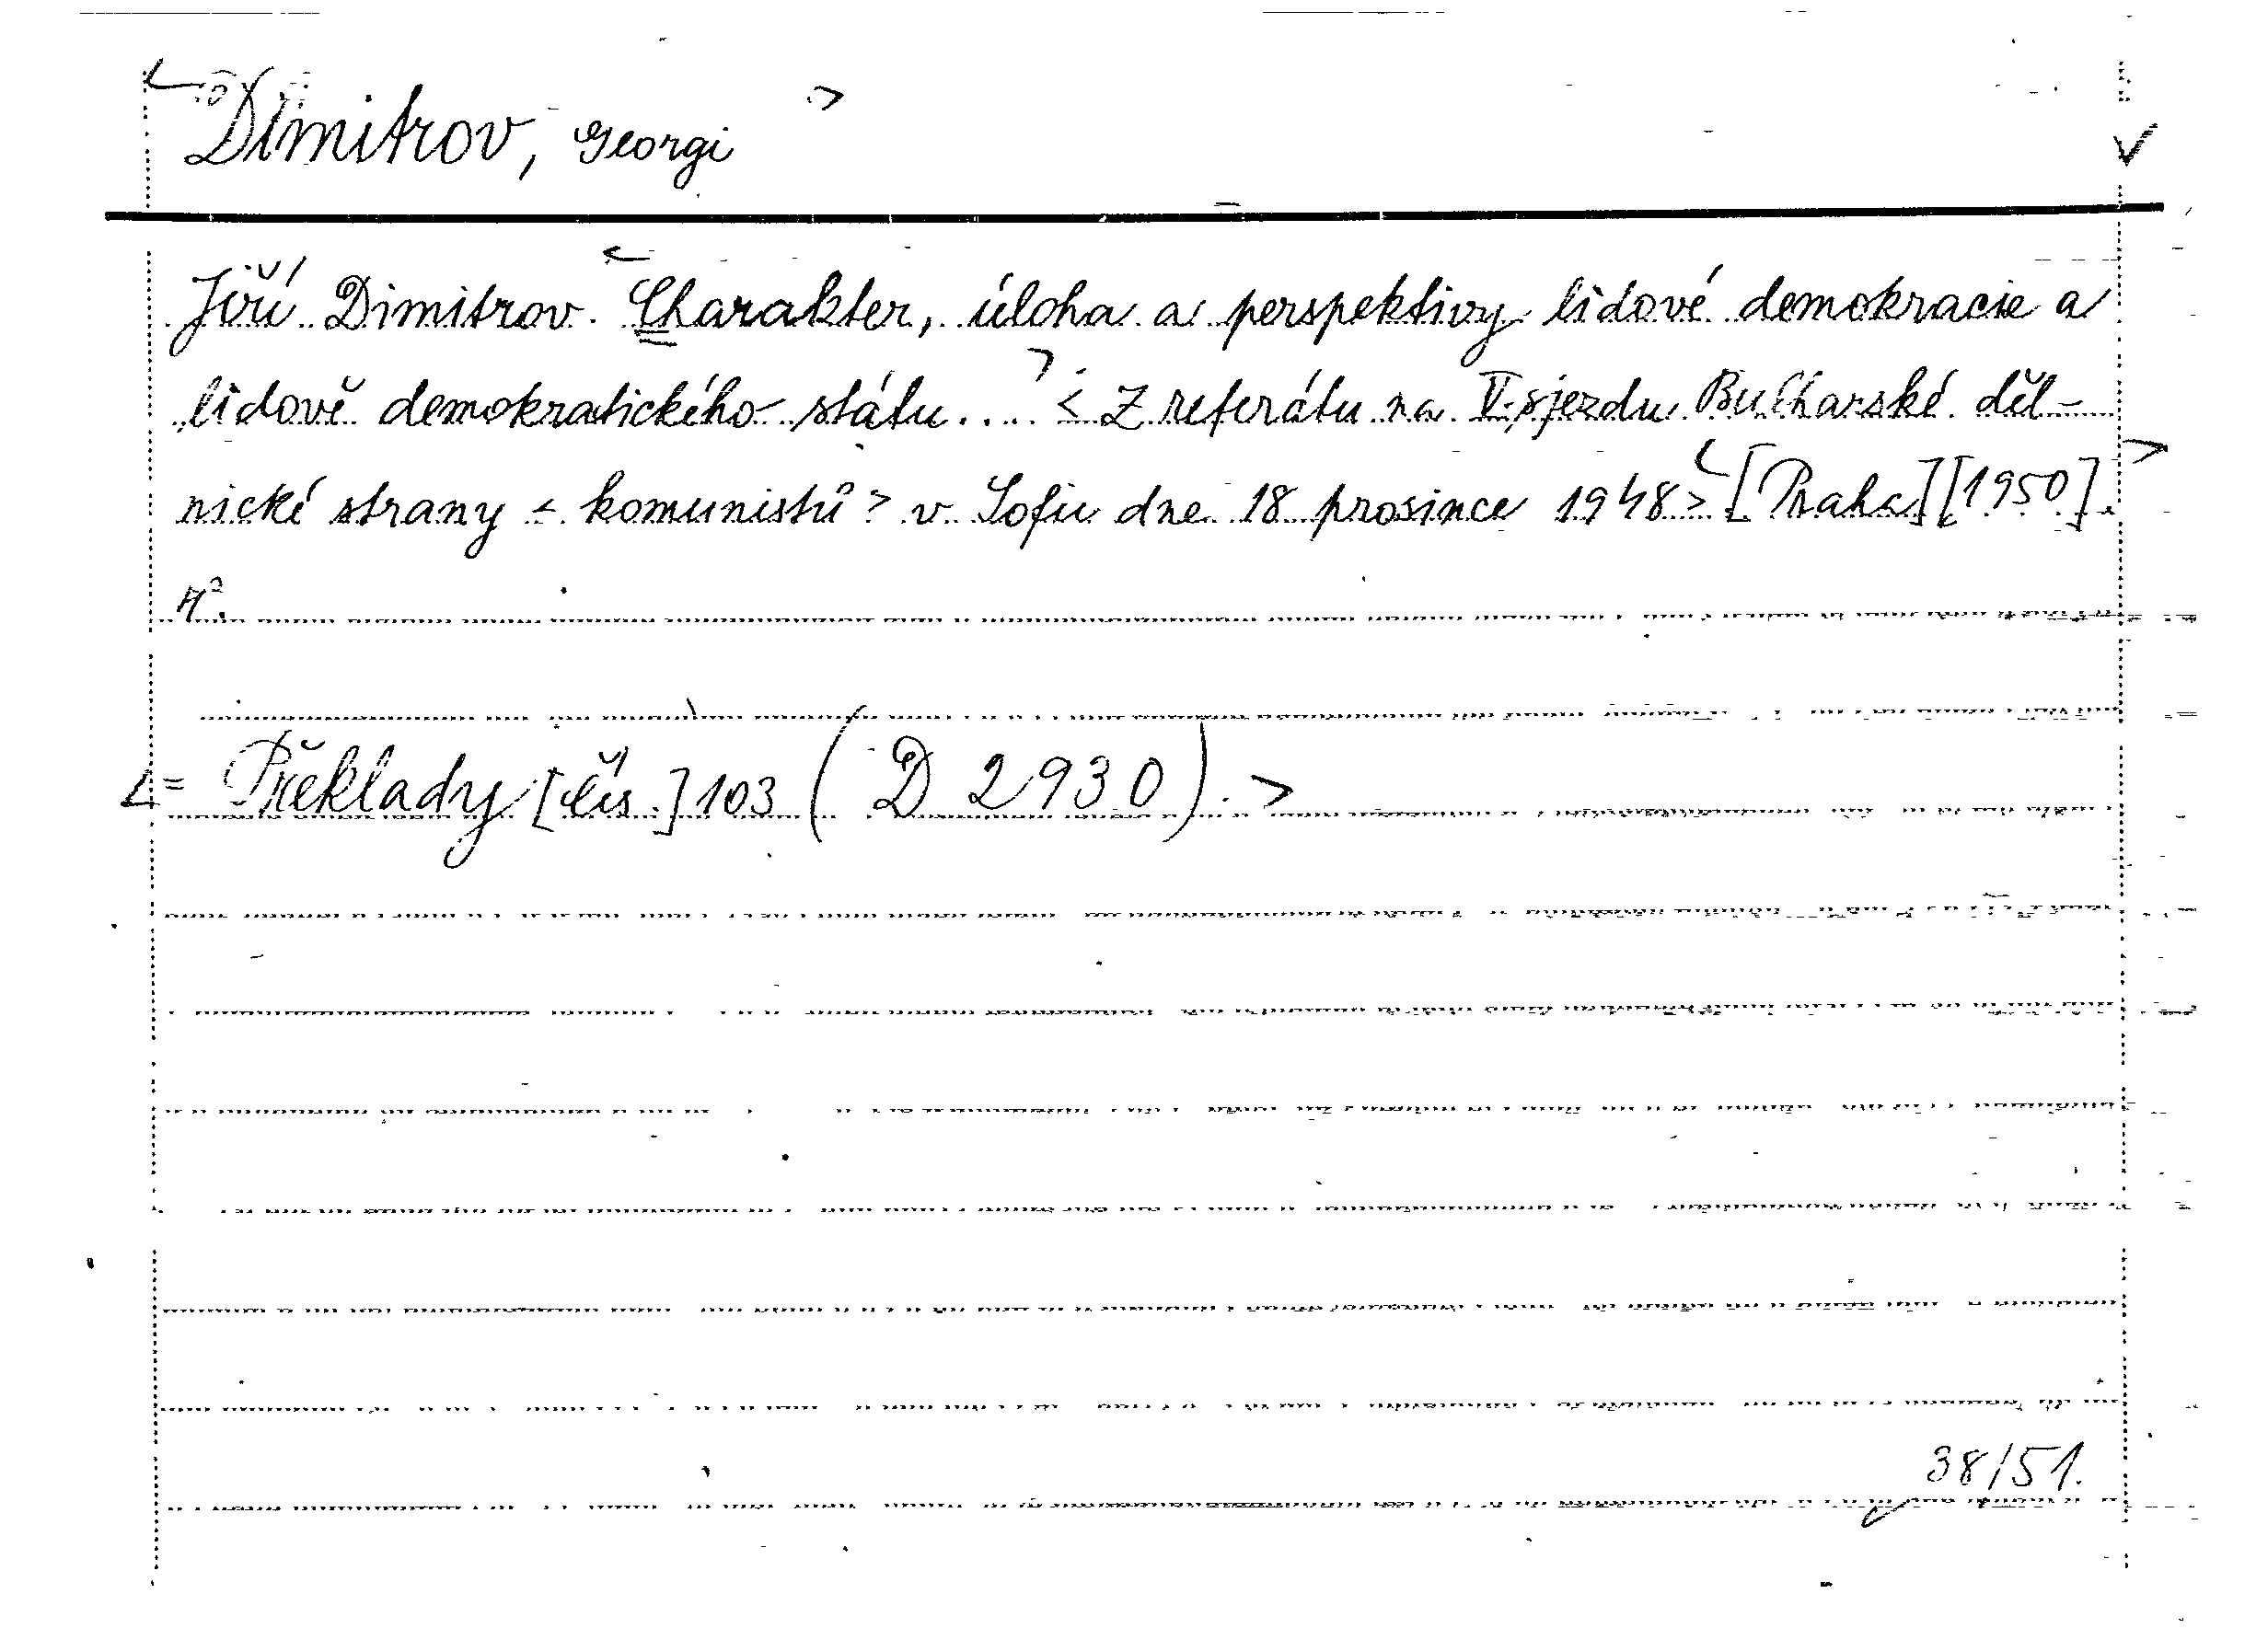 Dimitrov, Georgi
Jiří Dimitrov. Charakter, úloha a perspektivy lidové demokracie a
lidově demokratického státu... < Z referátu na V. sjezdu Bulharské děl-
nické strany < komunistů > v Sofii dne 18 prosince 1948 > [Praha] [1950].
4°.
= Překlady [čís.] 103 (D 2930).
38/51.